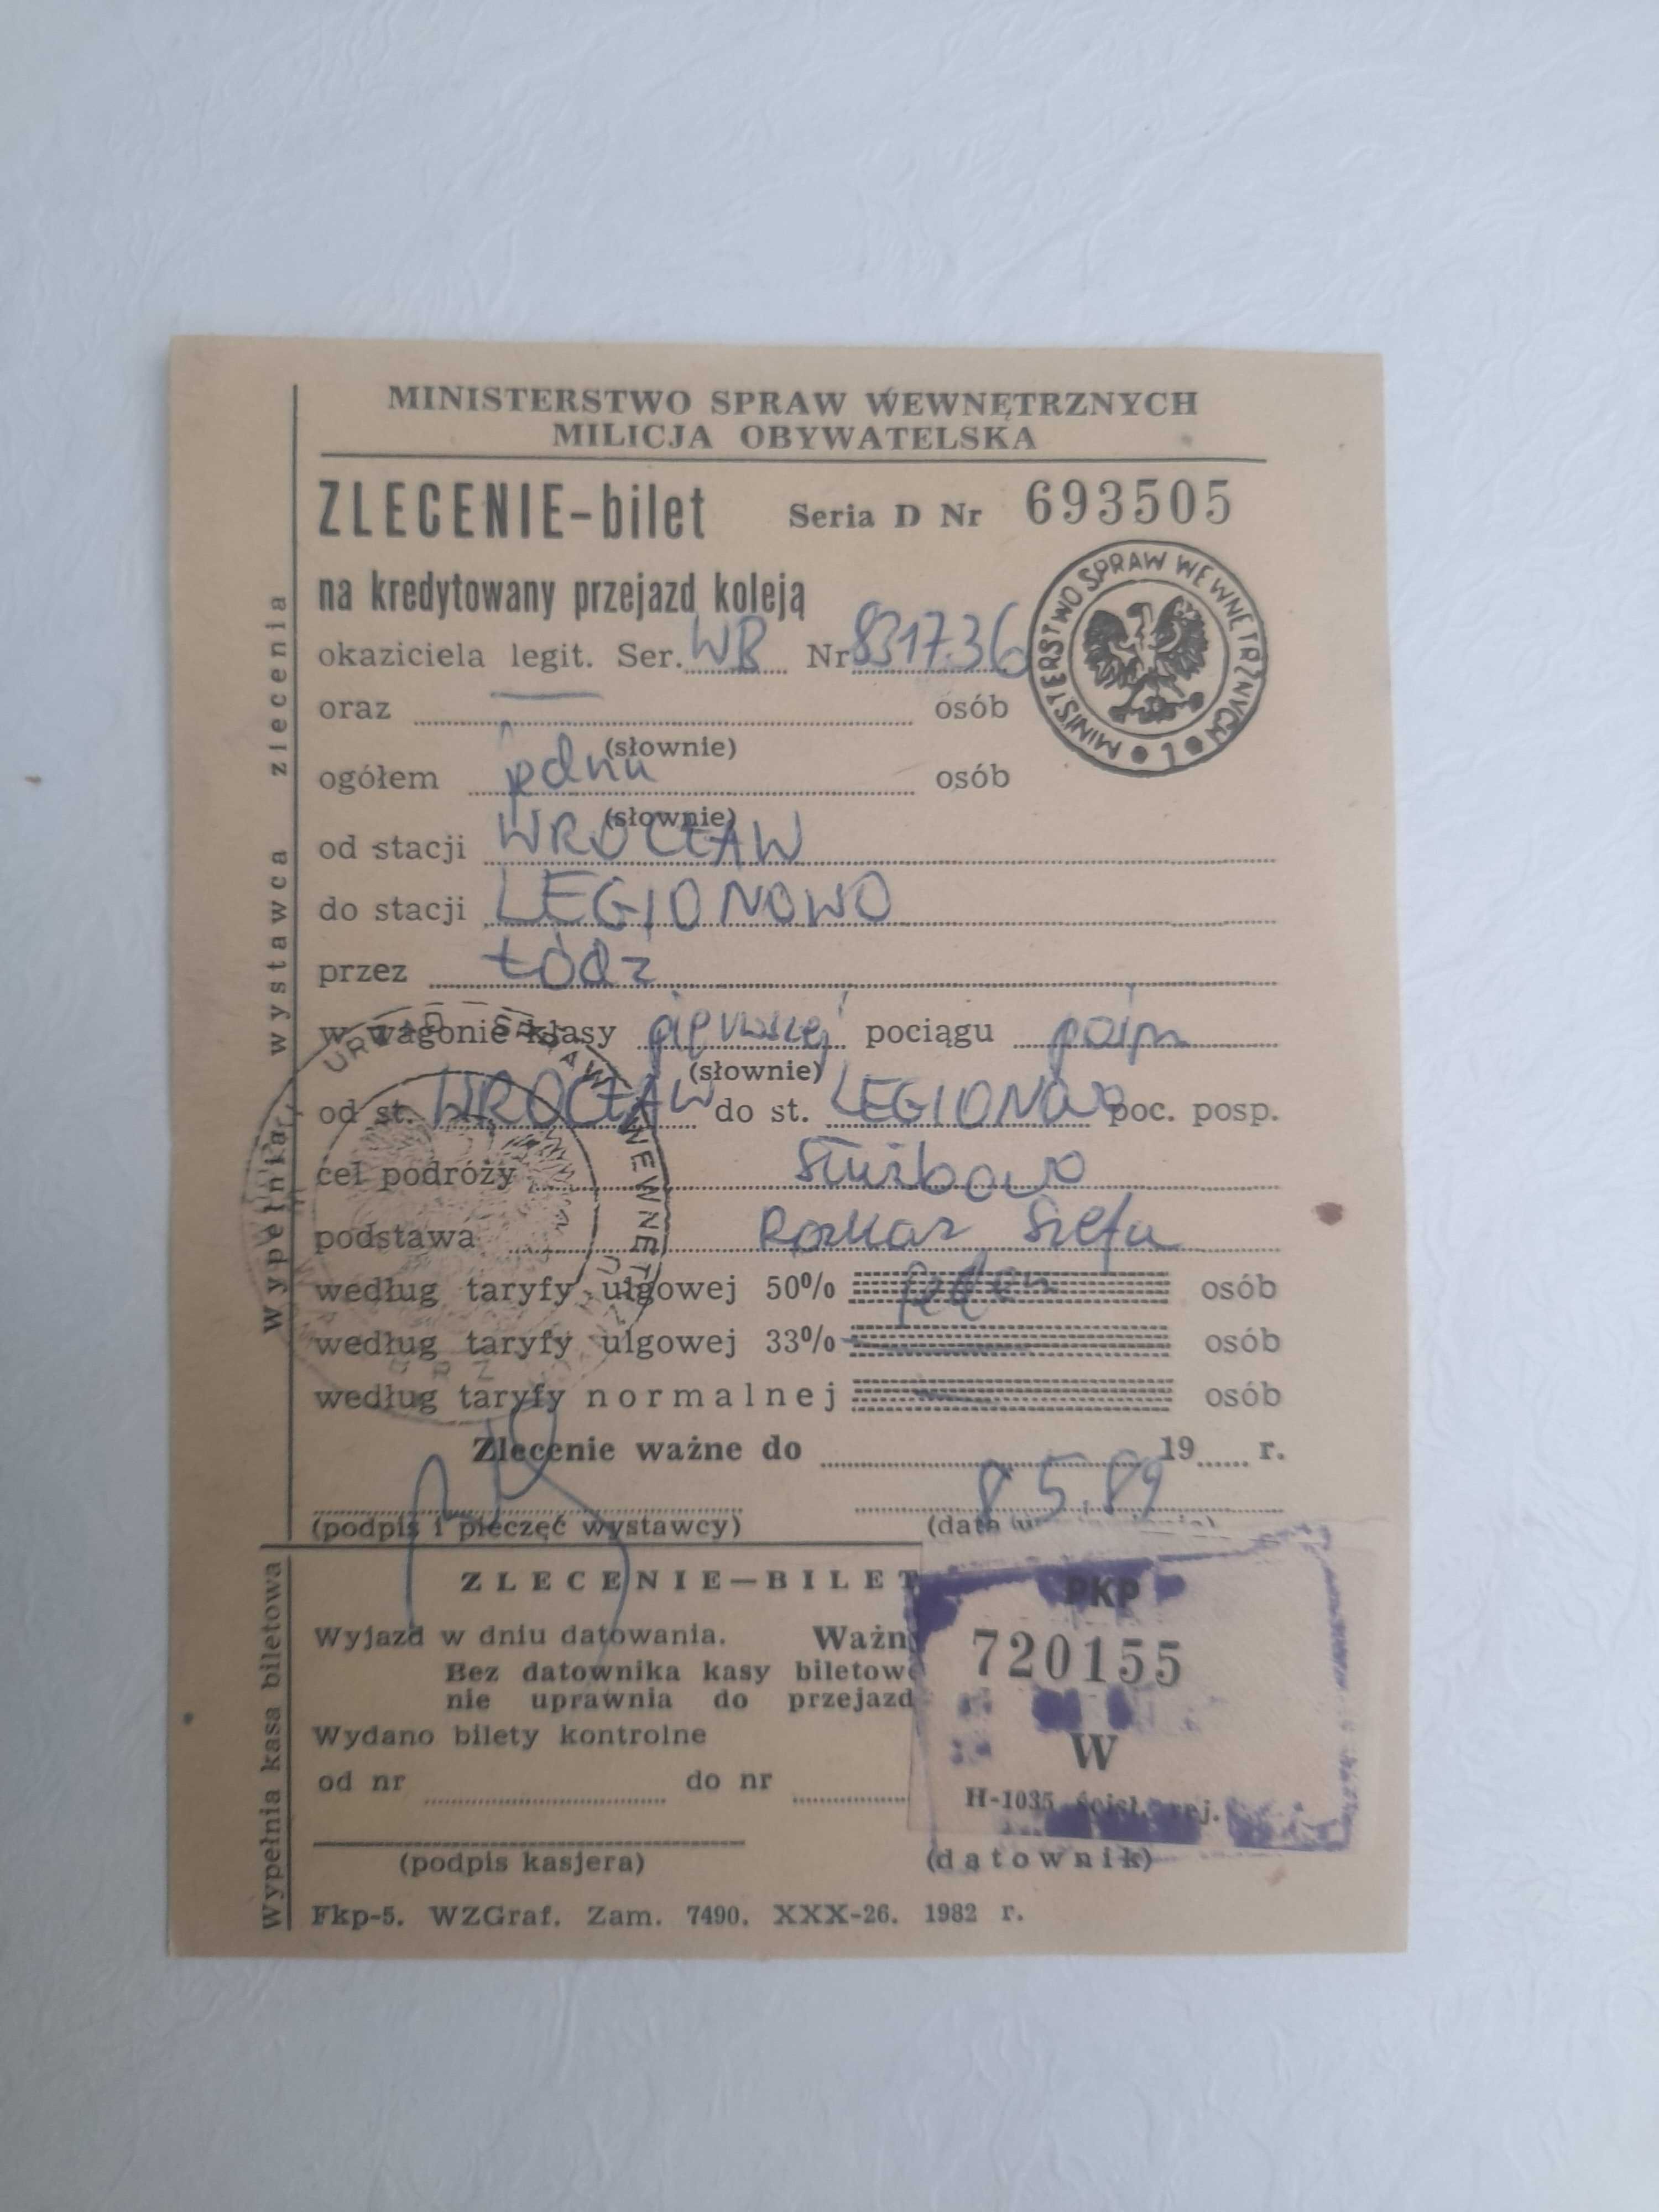 MINISTERSTWO SPRAW WEWNĘTRZNYCH
MILICJA OBYWATELSKA
ZLECENIE-bilet Seria D Nr 693505
na kredytowany przejazd koleją
MINISTERSTWO SPRAW WEWNĘTRZNYCH 1
okaziciela legit. Ser. WB Nr 831736
oraz — osób
(słownie)
ogółem jedna osób
(słownie)
od stacji WROCŁAW
do stacji LEGIONOWO
przez ŁÓDŹ
w wagonie klasy pierwszej pociągu
(słownie)
od st. WROCŁAW do st. LEGIONOWO poc. posp.
URZĄD SPRAW WEWNĘTRZNYCH
cel podróży Służbowo
podstawa Rozkaz Szefa
według taryfy ulgowej 50% jeden osób
według taryfy ulgowej 33% — osób
według taryfy normalnej — osób
Zlecenie ważne do 19 r.
8.5.89
(podpis i pieczęć wystawcy) (data
Wypełnia wystawca zlecenia
ZLECENIE—BILET
Wyjazd w dniu datowania. Ważn
Bez datownika kasy biletowe
nie uprawnia do przejazd
Wydano bilety kontrolne
od nr do nr
PKP
720155
W
H-1035 ścisł. rej.
(podpis kasjera) (datownik)
Wypełnia kasa biletowa
Fkp-5. WZGraf. Zam. 7490. XXX-26. 1982 r.